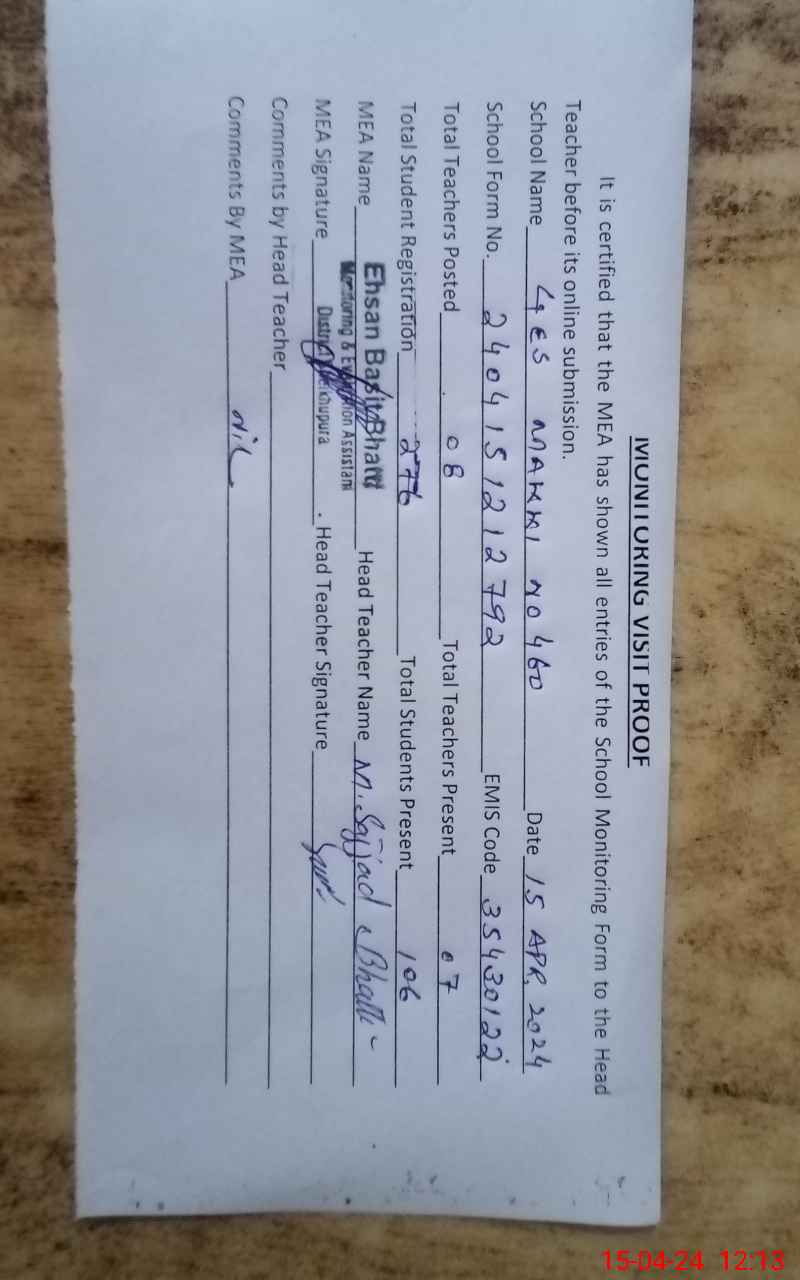 MONITORING VISIT PROOF
It is certified that the MEA has shown all entries of the School Monitoring Form to the Head
Teacher before its online submission.
School Name GES MAKKI NO 460 Date 15 APR, 2024
School Form No. 240415121 2792 EMIS Code 35430122
Total Teachers Posted 08 Total Teachers Present 07
Total Student Registration 276 Total Students Present 106
MEA Name Ehsan Basit Bhatti Head Teacher Name M. Sajjad Bhatti
Monitoring & Evaluation Assistant
MEA Signature District Sheikhupura Head Teacher Signature
Comments by Head Teacher
Comments By MEA Nil
15-04-24 12:13